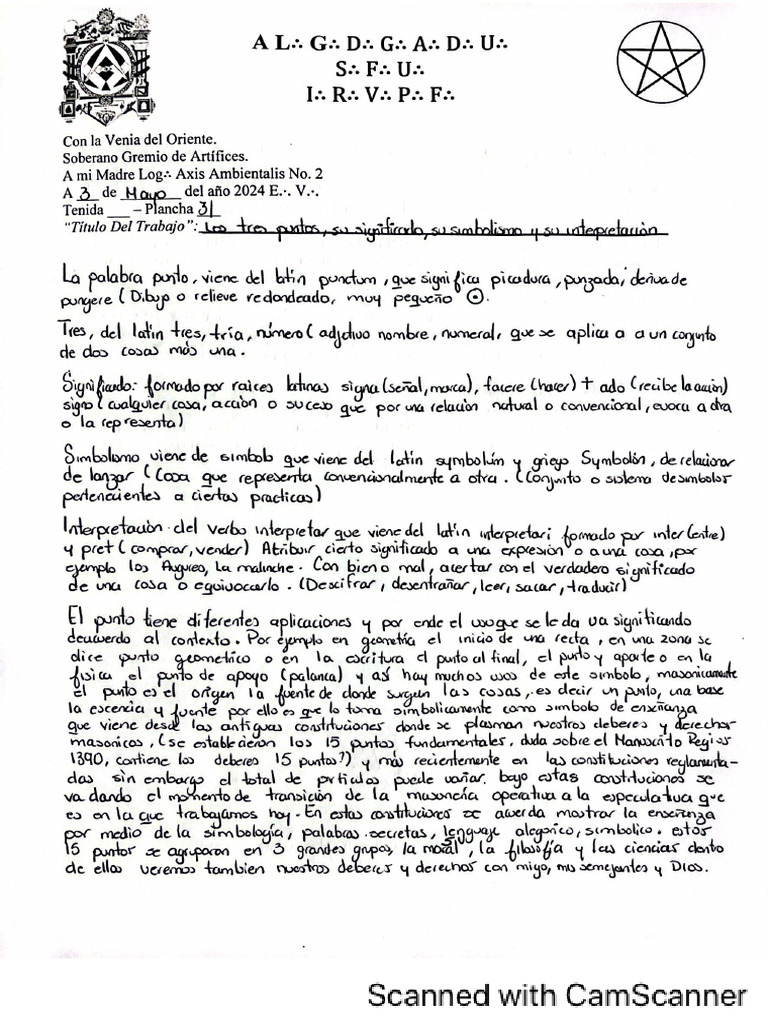 A L∴ G∴ D∴ G∴ A∴ D∴ U∴
S∴ F∴ U∴
I∴ R∴ V∴ P∴ F∴
Con la Venia del Oriente.
Soberano Gremio de Artífices.
A mi Madre Log∴ Axis Ambientalis No. 2
A 3 de Mayo del año 2024 E∴ V∴.
Tenida ___ – Plancha 31
"Título Del Trabajo": Los tres puntos, su significado, su simbolismo y su interpretación
La palabra punto, viene del latín punctum, que significa picadura, punzada, deriva de
pungere (Dibujo o relieve redondeado, muy pequeño ⊙.
Tres, del latín tres, tría, número (adjetivo nombre, numeral, que se aplica a a un conjunto
de dos cosas más una.
Significado: formado por raíces latinas signa (señal, marca), facere (hacer) + ado (recibe la acción)
signo (cualquier cosa, acción o suceso que por una relación natural o convencional, evoca a otra
o la representa)
Simbolismo viene de símbolo que viene del latín symbolúm y griego Symbolón, de relacionar
de lanzar (Cosa que representa convencionalmente a otra. (Conjunto o sistema de simbolos
pertenecientes a ciertas practicas)
Interpretación del verbo interpretar que viene del latín interpretari formado por inter (entre)
y pret (comprar, vender) Atribuir cierto significado a una expresión o a una cosa, por
ejemplo los La malinche. Con bien o mal, acertar con el verdadero significado
de una cosa o equivocarlo. (Descifrar, desentrañar, leer, sacar, traducir)
El punto tiene diferentes aplicaciones y por ende el uso que se le da va significando
deacuerdo al contexto. Por ejemplo en geometría el inicio de una recta, en una zona se
dice punto geometrico o en la escritura el punto al final, el punto y aparte o en la
física el punto de apoyo (palanca) y así hay muchos usos de este simbolo, masonicamente
el punto es el origen la fuente de donde surgen las cosas, es decir un punto, una base
la escencia y fuente por ello es que lo toma simbolicamente como simbolo de enseñanza
que viene desde las antiguas constituciones donde se plasman nuestros deberes y derechos
masonicos, (se establecieron los 15 puntos fundamentales, duda sobre el Manuscrito Regius
1390, contiene los deberes 15 puntos?) y más recientemente en las constituciones reglamenta-
das sin embargo el total de artículos puede variar. bajo estas constituciones se
va dando el momento de transición de la masonería operativa a la especulativa que
es en la que trabajamos hoy. En estas constituciones se acuerda mostrar la enseñanza
por medio de la simbología, palabras secretas, lenguaje alegorico, simbolico. estos
15 puntos se agruparon en 3 grandes grupos, la moral, la filosofía y las ciencias dento
de ellos veremos tambien nuestros deberes y derechos con migo, mis semejantes y Dios.
Scanned with CamScanner